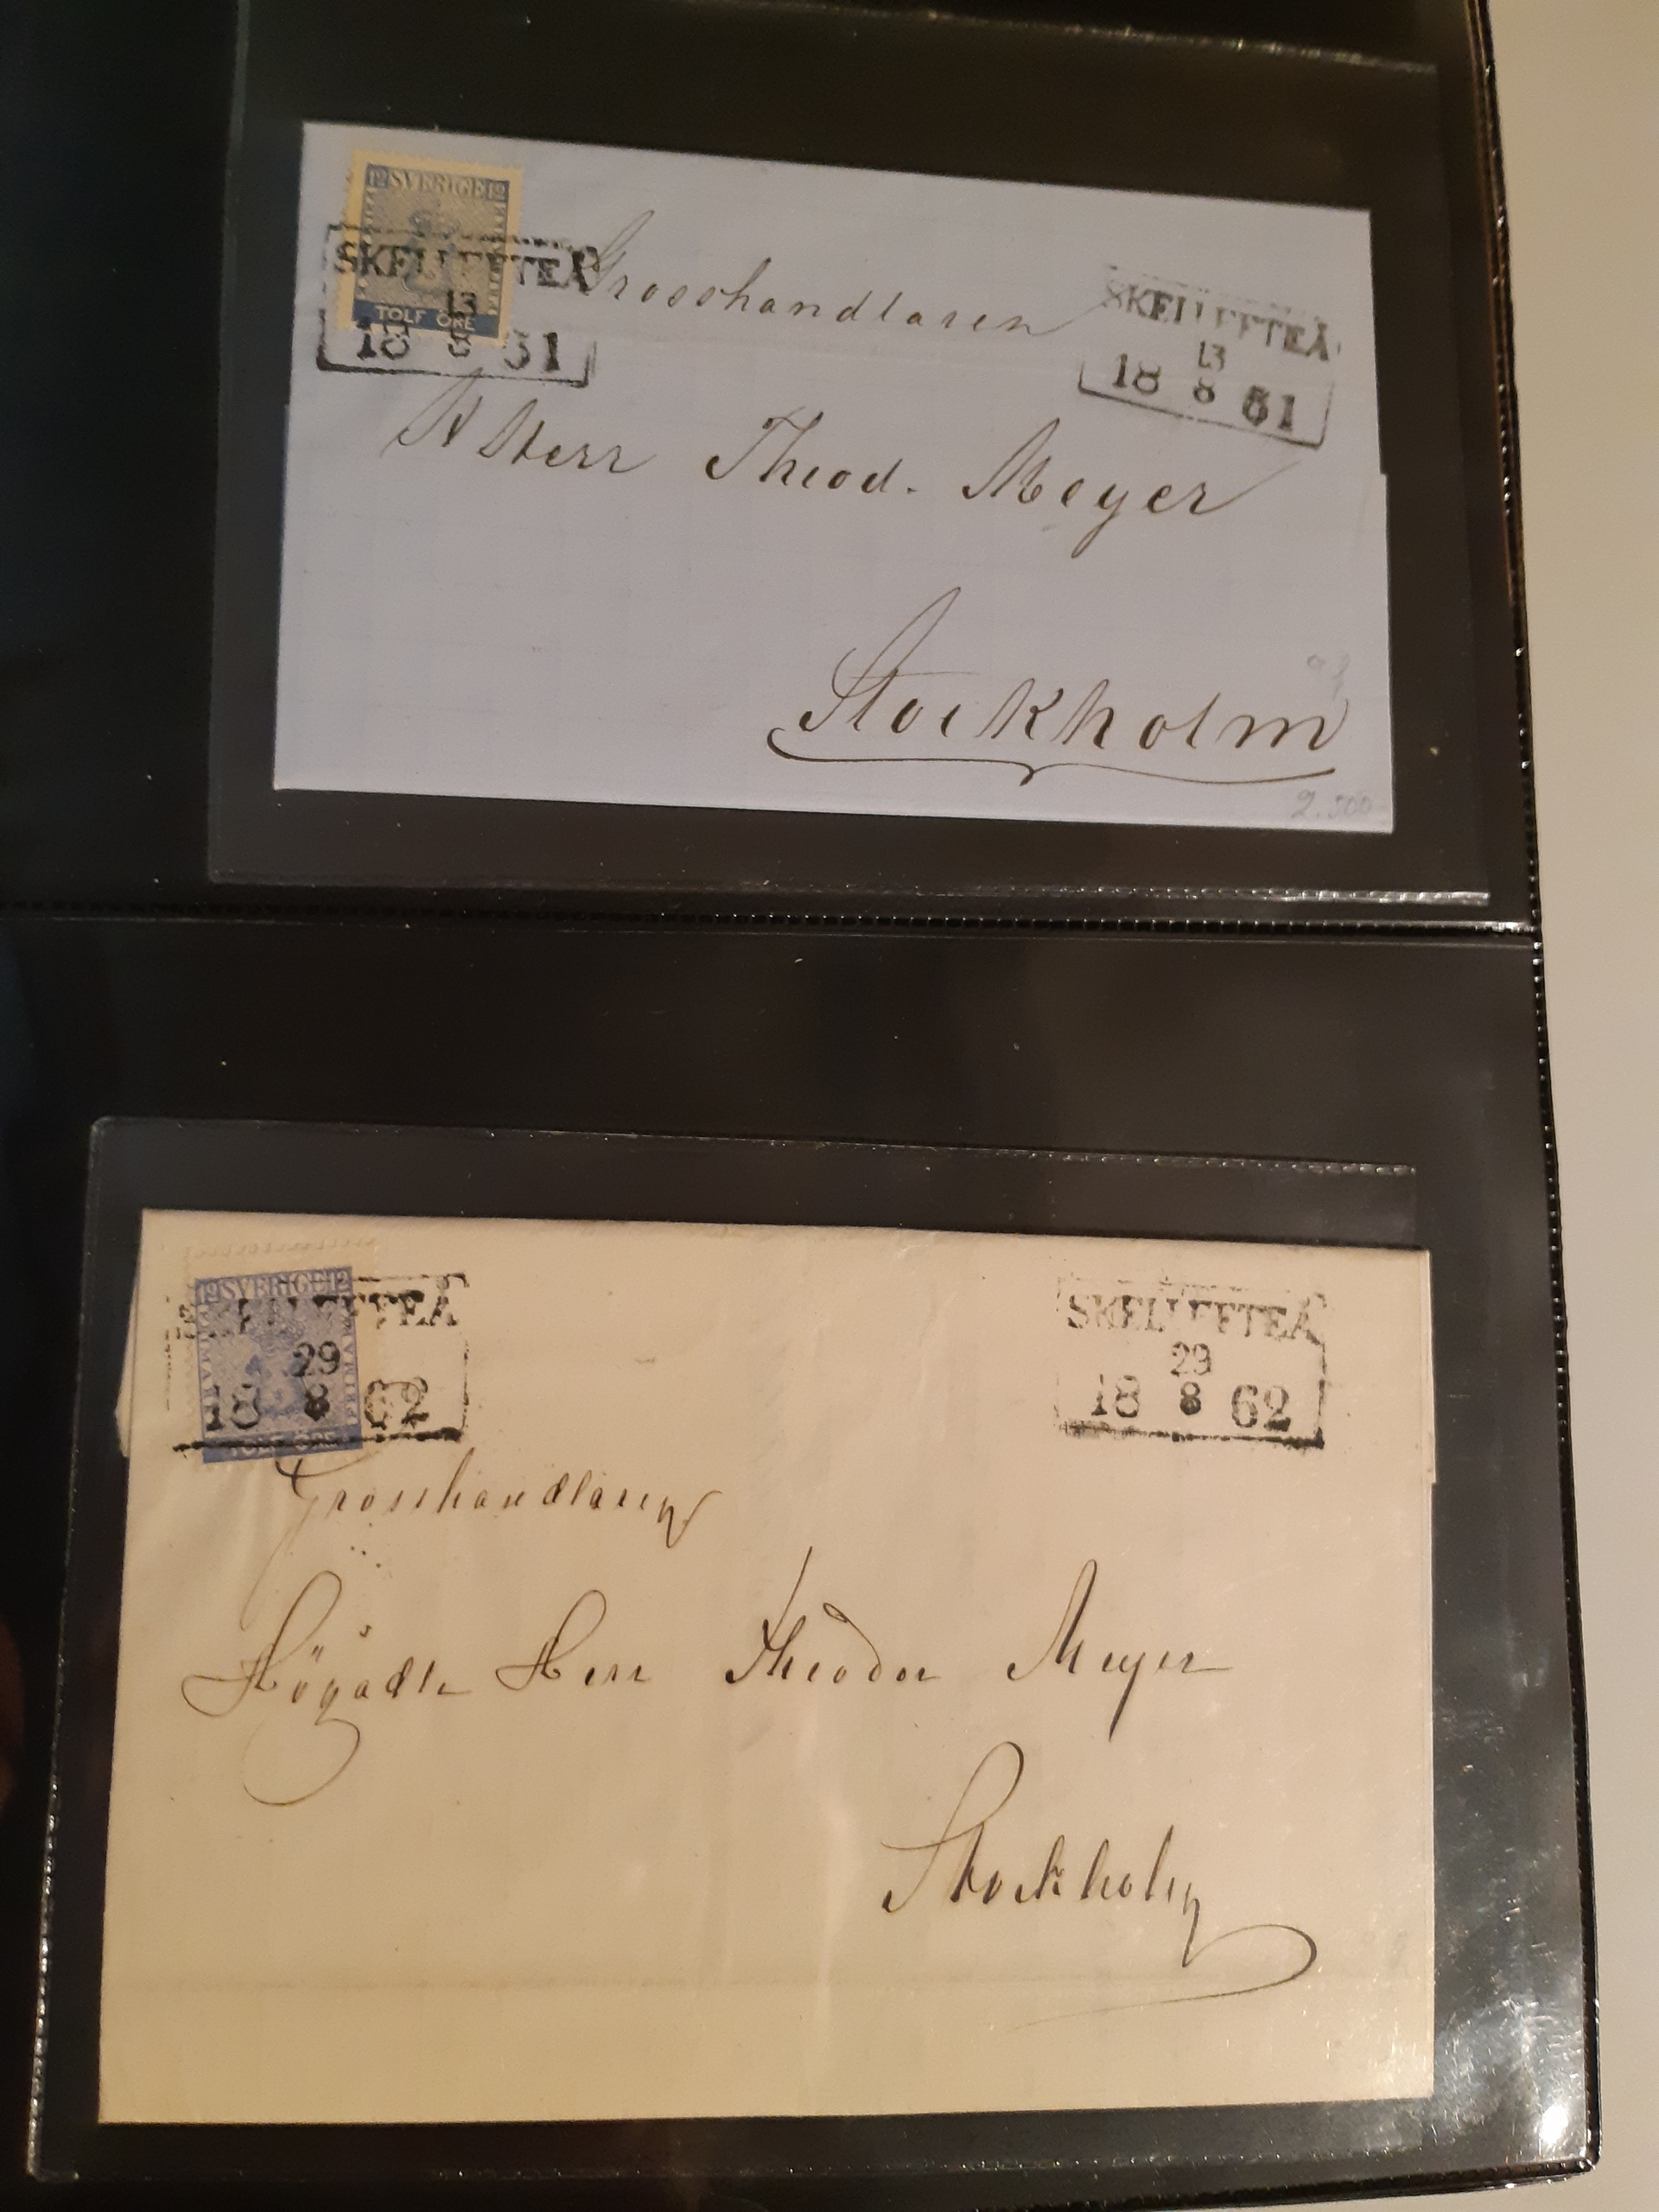 12 SVERIGE 12
TOLF ÖRE
SKELLEFTEÅ
13
18 8 61
Grosshandlaren
SKELLEFTEÅ
13
18 8 61
Herr Theod. Meyer
Stockholm
2.500
12 SVERIGE 12
FRIMÄRKE
TOLF ÖRE
SKELLEFTEÅ
29
18 8 62
SKELLEFTEÅ
29
18 8 62
Grosshandlaren
Högädle Herr Theodor Meyer
Stockholm